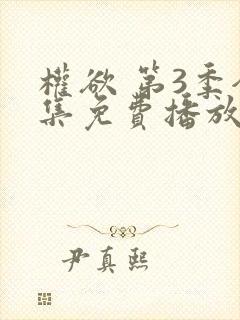 權欲 第3季
集免費播放
尹真熙